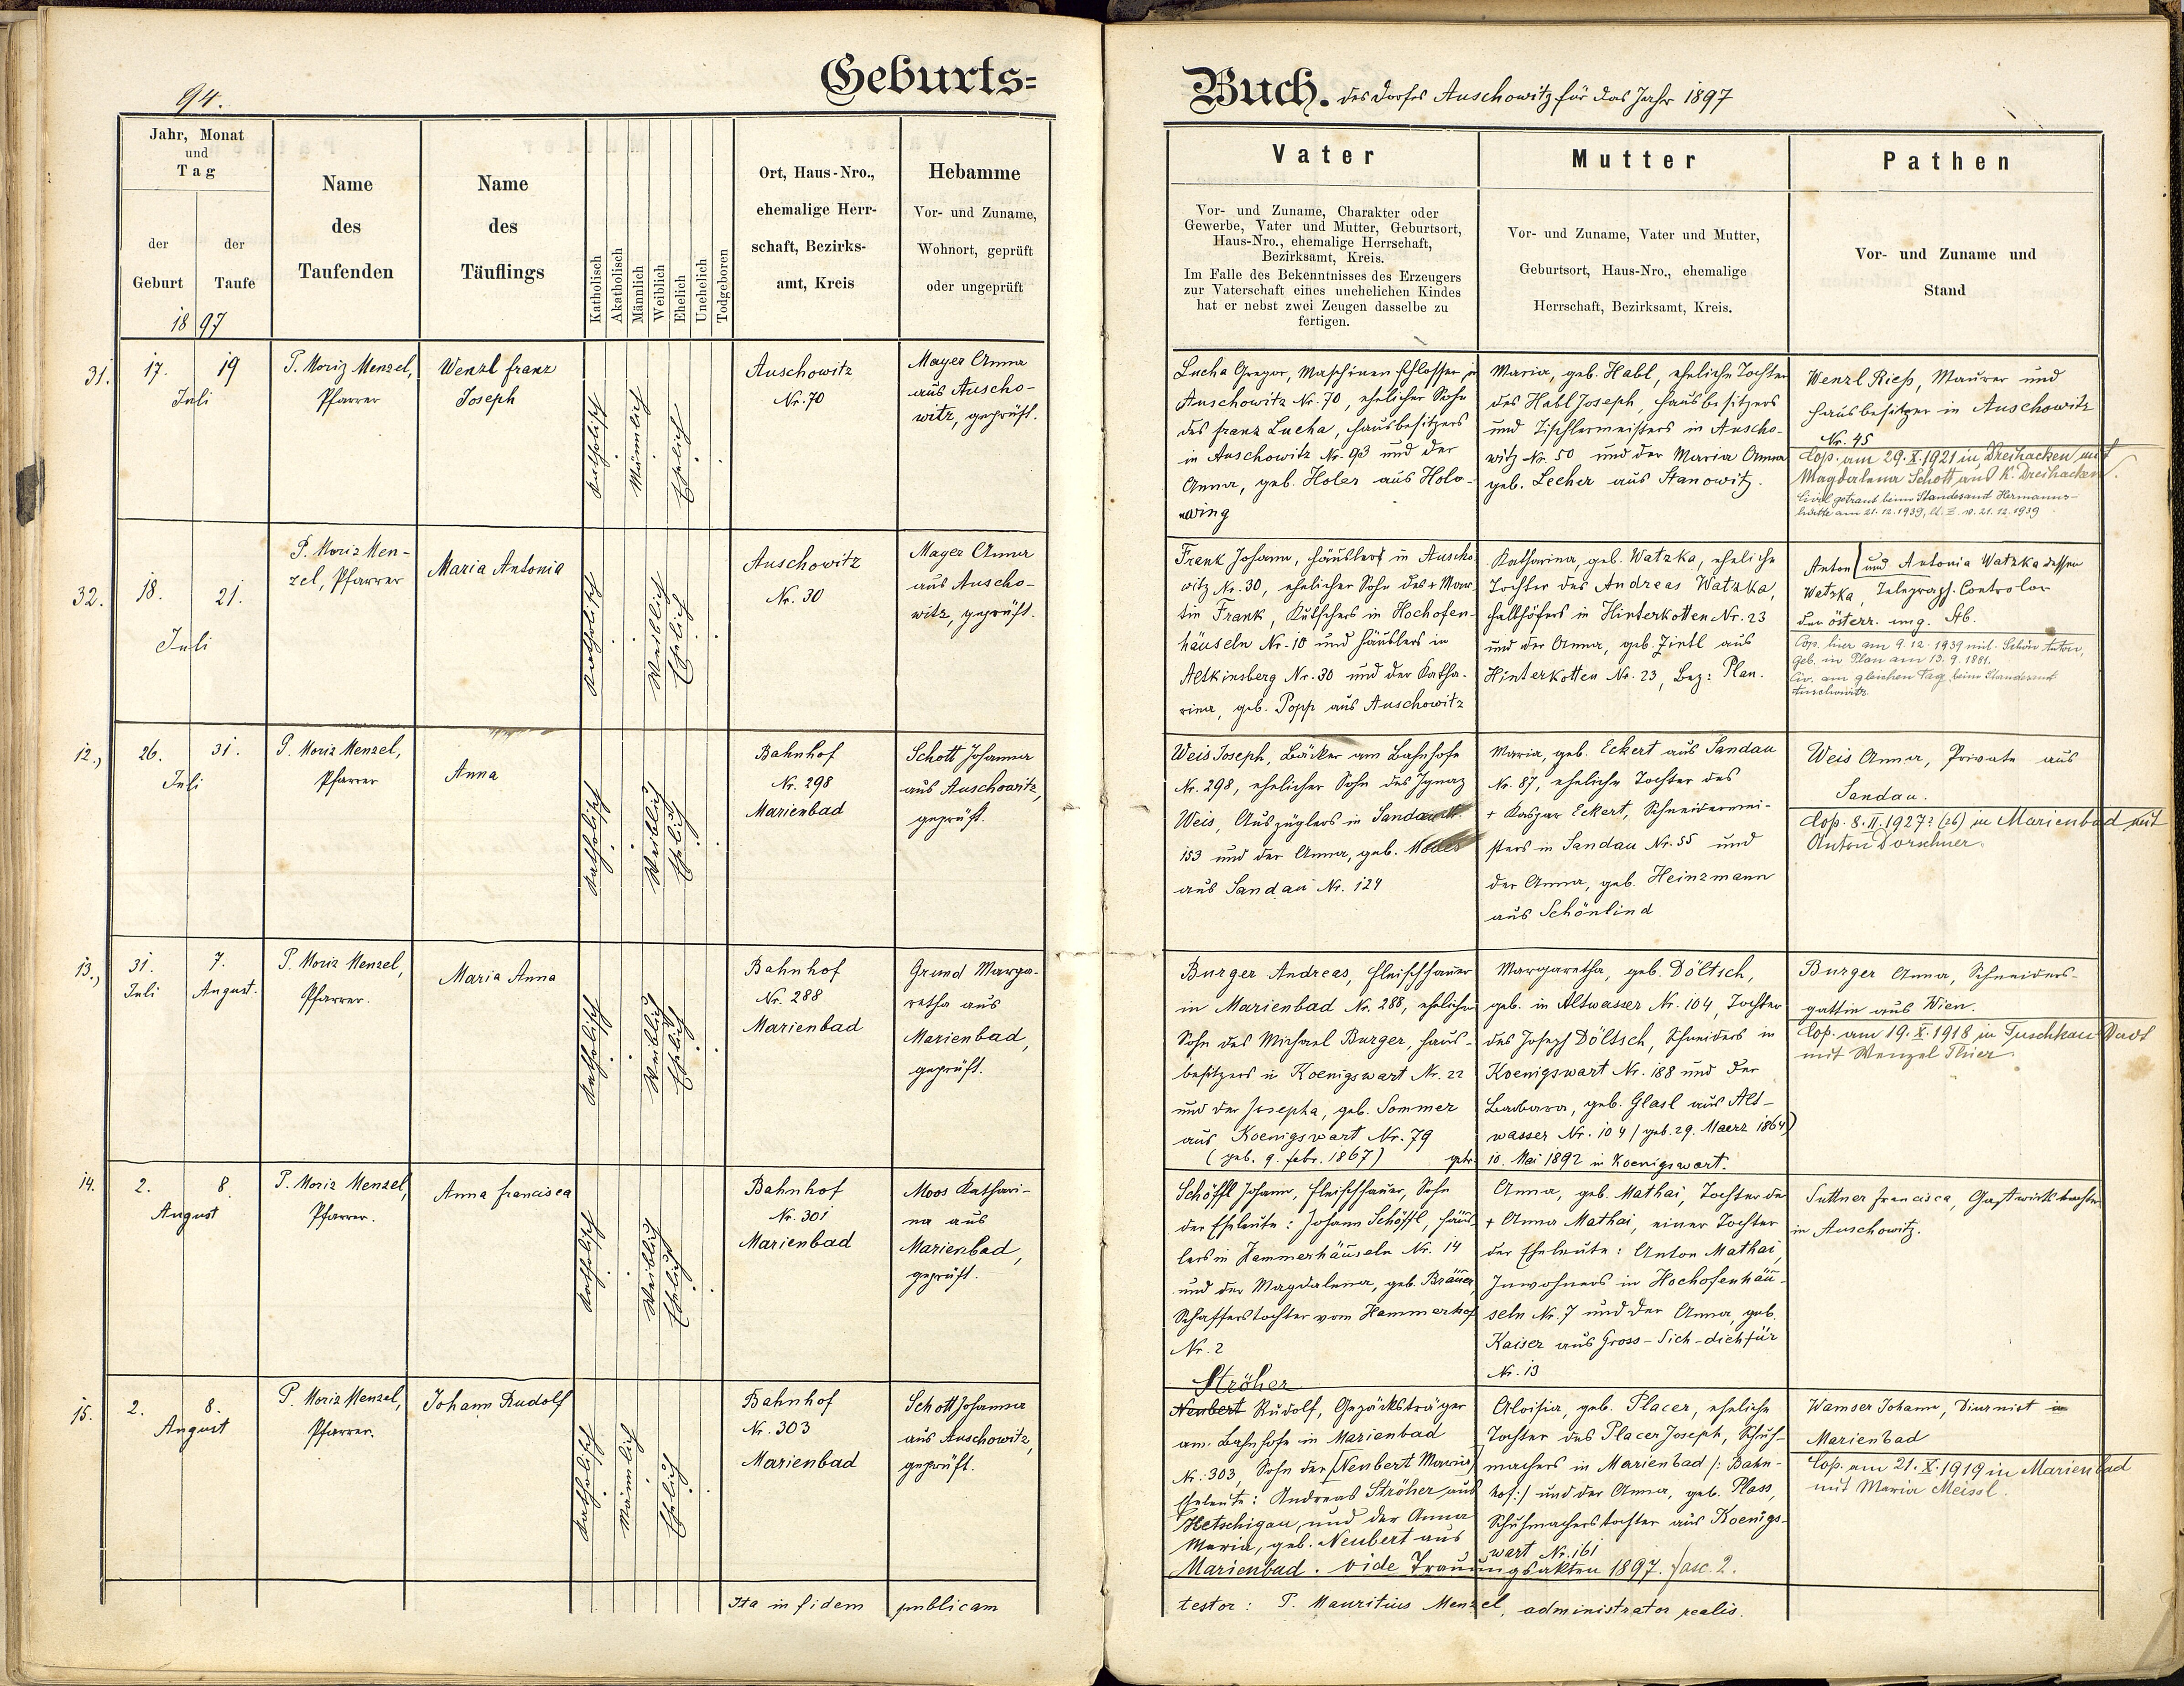 94.
Geburts=
Buch. des Dorfes Auschowitz für das Jahr 1897
Jahr, Monat
und
Tag
der
Geburt
der
Taufe
18 97
Name
des
Taufenden
Name
des
Täuflings
Katholisch
Akatholisch
Männlich
Weiblich
Ehelich
Unehelich
Todgeboren
Ort, Haus-Nro.,
ehemalige Herr-
schaft, Bezirks-
amt, Kreis
Hebamme
Vor- und Zuname,
Wohnort, geprüft
oder ungeprüft
Vater
Vor- und Zuname, Charakter oder
Gewerbe, Vater und Mutter, Geburtsort,
Haus-Nro., ehemalige Herrschaft,
Bezirksamt, Kreis.
Im Falle des Bekenntnisses des Erzeugers
zur Vaterschaft eines unehelichen Kindes
hat er nebst zwei Zeugen dasselbe zu
fertigen.
Mutter
Vor- und Zuname, Vater und Mutter,
Geburtsort, Haus-Nro., ehemalige
Herrschaft, Bezirksamt, Kreis.
Pathen
Vor- und Zuname und
Stand
31.
17. 19
Juli
P. Moriz Menzel,
Pfarrer
Wenzl Franz
Joseph
Katholisch
Männlich
Ehelich
Auschowitz
Nr. 70
Mayer Anna
aus Auscho-
witz, geprüft.
Lucha Gregor, Maschinenschlosser in
Auschowitz Nr. 70, ehelicher Sohn
des Franz Lucha, Hausbesitzers
in Auschowitz Nr. 93 und der
Anna, geb. Holer aus Holo-
wing
Maria, geb. Habl, eheliche Tochter
des Habl Joseph, Hausbesitzers
und Tischlermeisters in Auscho-
witz Nr. 50 und der Maria Anna
geb. Lecher aus Stanowitz.
Wenzl Rieß, Maurer und
Hausbesitzer in Auschowitz
Nr. 45
Cop. am 29. X. 1921 in Dreihacken mit
Magdalena Schott aus K. Dreihacken.
Civil getraut beim Standesamt Hermanns-
hütte am 21.12.1939, lt. Z. v. 21.12.1939
32.
18. 21.
Juli
P. Moriz Men-
zel, Pfarrer
Maria Antonia
Katholisch
Weiblich
Ehelich
Auschowitz
Nr. 30
Mayer Anna
aus Auscho-
witz, geprüft.
Frank Johann, Häusler in Auscho-
witz Nr. 30, ehelicher Sohn des + Mar-
tin Frank, Kutschers in Hochofen-
häuseln Nr. 10 und Häuslers in
Altkinsberg Nr. 30 und der Katha-
rina, geb. Popp aus Auschowitz
Katharina, geb. Watzka, eheliche
Tochter des Andreas Watzka,
Halbhöfers in Hinterkotten Nr. 23
und der Anna, geb. Zintl aus
Hinterkotten Nr. 23, Bez: Plan.
Anton und Antonia Watzka dessen
Watzka, Telegraph. Controlor
der österr. ung. Stb.
Cop. hier am 9.12.1939 mit Schön Anton,
geb. in Plan am 13.9.1881.
Civ. am gleichen Tag beim Standesamt
Auschowitz.
12.,
26. 31.
Juli
P. Moriz Menzel,
Pfarrer
Anna
Katholisch
Weiblich
Ehelich
Bahnhof
Nr. 298
Marienbad
Schott Johanna
aus Auschowitz,
geprüft.
Weis Joseph, Bäcker am Bahnhofe
Nr. 298, ehelicher Sohn des Ignaz
Weis, Auszüglers in Sandau Nr.
153 und der Anna, geb.
aus Sandau Nr. 124
Maria, geb. Eckert aus Sandau
Nr. 87, eheliche Tochter des
+ Kaspar Eckert, Schneidermei-
sters in Sandau Nr. 55 und
der Anna, geb. Heinzmann
aus Schönlind
Weis Anna, Private aus
Sandau.
Cop. 8. II. 1927? (26) in Marienbad mit
Anton Dorschner.
13.,
31. 7.
Juli August.
P. Moriz Menzel,
Pfarrer.
Maria Anna
Katholisch
Weiblich
Ehelich
Bahnhof
Nr. 288
Marienbad
Grund Marga-
retha aus
Marienbad,
geprüft.
Burger Andreas, Fleischhauer
in Marienbad Nr. 288, ehelicher
Sohn des Michael Burger, Haus-
besitzers in Koenigswart Nr. 22
und der Josepha, geb. Sommer
aus Koenigswart Nr. 79
(geb. 9. Febr. 1867) getr.
Margaretha, geb. Döltsch,
geb. in Altwasser Nr. 104, Tochter
des Joseph Döltsch, Schneiders in
Koenigswart Nr. 188 und der
Barbara, geb. Glasl aus Alt-
wasser Nr. 104 (geb. 29. Maerz 1864)
10. Mai 1892 in Koenigswart.
Burger Anna, Schneiders-
gattin aus Wien.
Cop. am 19. X. 1918 in Tuschkau Stadt
mit Wenzel Thier.
14.
2. 8.
August
P. Moriz Menzel,
Pfarrer.
Anna Francisca
Katholisch
Weiblich
Ehelich
Bahnhof
Nr. 301
Marienbad
Moos Kathari-
na aus
Marienbad,
geprüft.
Schöffl Johann, Fleischhauer, Sohn
der Eheleute: Johann Schöffl, Häus-
lers in Hammerhäuseln Nr. 14
und der Magdalena, geb. Bräuer,
Schafferstochter vom Hammerhof
Nr. 2
Anna, geb. Mathai, Tochter der
+ Anna Mathai, einer Tochter
der Eheleute: Anton Mathai,
Inwohners in Hochofenhäu-
seln Nr. 7 und der Anna, geb.
Kaiser aus Gross-Sich-dichfür
Nr. 13
Suttner Francisca, Gastwirtstochter
in Auschowitz.
15.
2. 8.
August
P. Moriz Menzel,
Pfarrer.
Johann Rudolf
Katholisch
Männlich
Ehelich
Bahnhof
Nr. 303
Marienbad
Schott Johanna
aus Auschowitz,
geprüft.
Ströher
Neubert Rudolf, Gepäcksträger
am Bahnhofe in Marienbad
Nr. 303, Sohn der (Neubert Maria)
Eheleute: Andreas Ströher aus
Hetschigau, und der Anna
Maria, geb. Neubert aus
Marienbad. vide Trauungsakten 1897. fasc. 2.
Aloisia, geb. Placer, eheliche
Tochter des Placer Joseph, Schuh-
machers in Marienbad /: Bahn-
hof :/ und der Anna, geb. Plass,
Schuhmacherstochter aus Koenigs-
wart Nr. 161
Wamser Johann, Diurnist in
Marienbad
Cop. am 21. X. 1919 in Marienbad
mit Maria Meissl.
Ita in fidem publicam
testor: P. Mauritius Menzel, administrator realis.